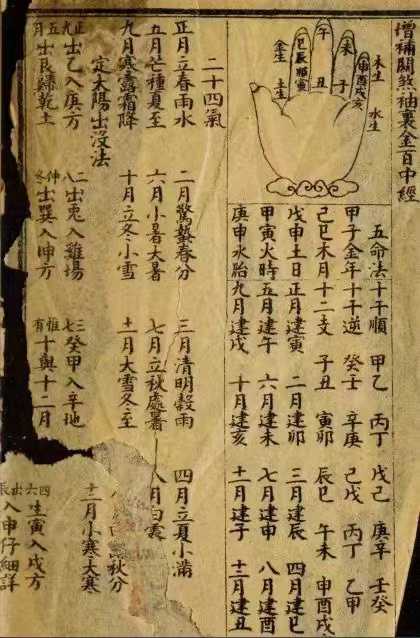 增補關煞袖裏金百中經
木生
水生
申酉戌亥
未
子
午
丑
巳辰卯寅
金生
土生
五命法 十干順 甲乙 丙丁 戊己 庚辛 壬癸
甲子金年 十干逆 癸壬 辛庚 己戊 丙丁 乙甲
己巳木月 十二支 子丑 寅卯 辰巳 午未 申酉戌
戊申土日 正月建寅 二月建卯 三月建辰 四月建巳
甲寅火時 五月建午 六月建未 七月建申 八月建酉
庚申水胎 九月建戌 十月建亥 十一月建子 十二月建丑
二十四氣
正月立春雨水 二月驚蟄春分 三月清明穀雨 四月立夏小滿
五月芒種夏至 六月小暑大暑 七月立秋處暑 八月白露
秋分
九月寒露霜降 十月立冬小雪 十一月大雪冬至 十二月小寒大寒
定太陽出沒法
正九出乙入庚方 二八出兎入雞場 三七癸甲入辛地 四六生寅入戌方
五月出艮歸乾土 仲冬出巽入坤方 惟有十與十二月 出辰入申仔細詳